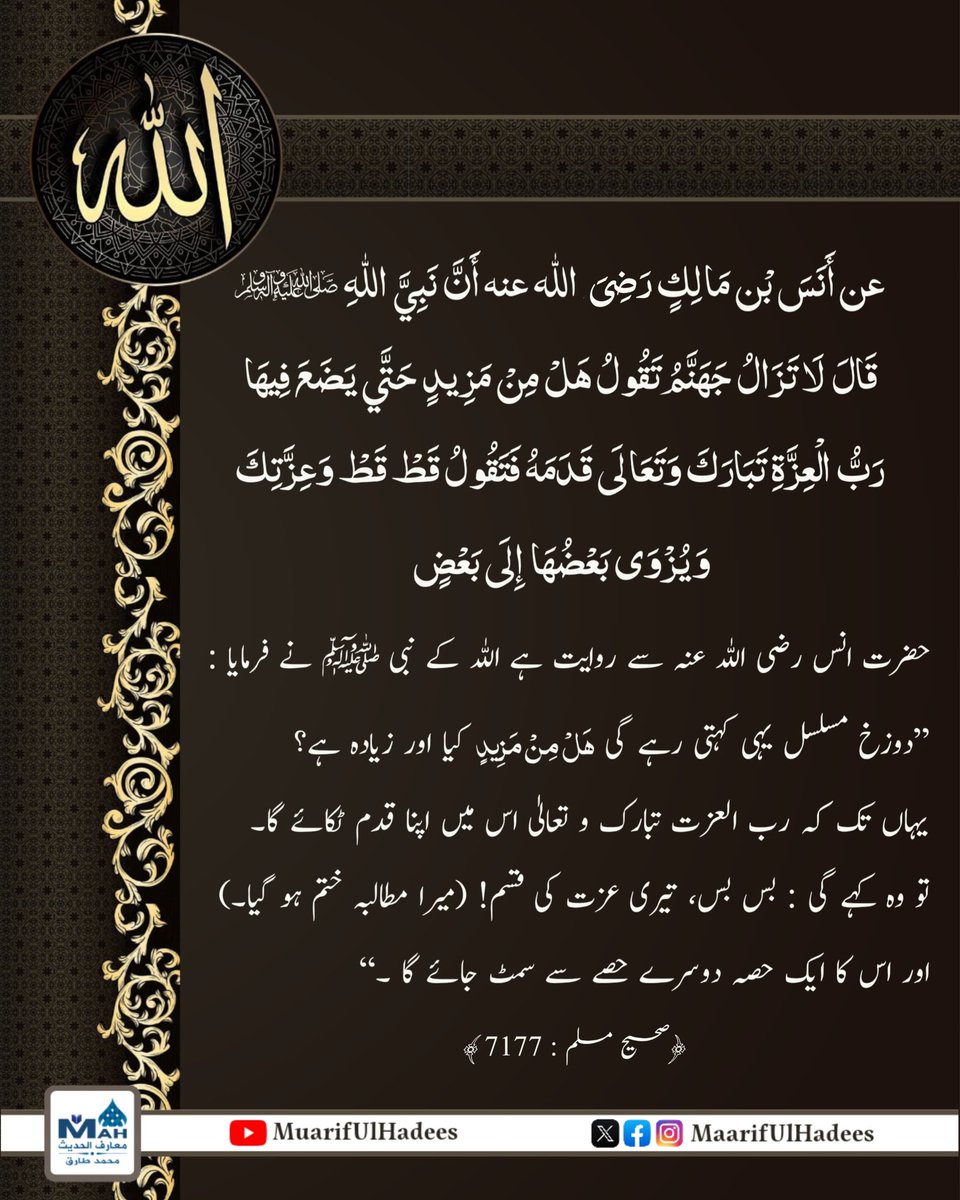 الله
عن أَنَسَ بْن مَالِكٍ رَضِیَ الله عنه أَنَّ نَبِيَّ اللهِ صلی اللہ علیہ وآلہ وسلم
قَالَ لَا تَزَالُ جَهَنَّمُ تَقُولُ هَلْ مِنْ مَزِيدٍ حَتَّي يَضَعَ فِيهَا
رَبُّ الْعِزَّةِ تَبَارَكَ وَتَعَالَى قَدَمَهُ فَتَقُولُ قَطْ قَطْ وَعِزَّتِكَ
وَيُزْوَى بَعْضُهَا إِلَى بَعْضٍ
حضرت انس رضی اللہ عنہ سے روایت ہے اللہ کے نبی ﷺ نے فرمایا :
”دوزخ مسلسل یہی کہتی رہے گی هَلْ مِنْ مَزِيدٍ کیا اور زیادہ ہے؟
یہاں تک کہ رب العزت تبارک و تعالٰی اس میں اپنا قدم ٹکائے گا۔
تو وہ کہے گی : بس بس، تیری عزت کی قسم! (میرا مطالبہ ختم ہو گیا۔)
اور اس کا ایک حصہ دوسرے حصے سے سمٹ جائے گا ۔“
﴿صحیح مسلم : 7177﴾
MAH
معارف الحدیث
محمد طارق
MuarifUlHadees
MaarifUlHadees